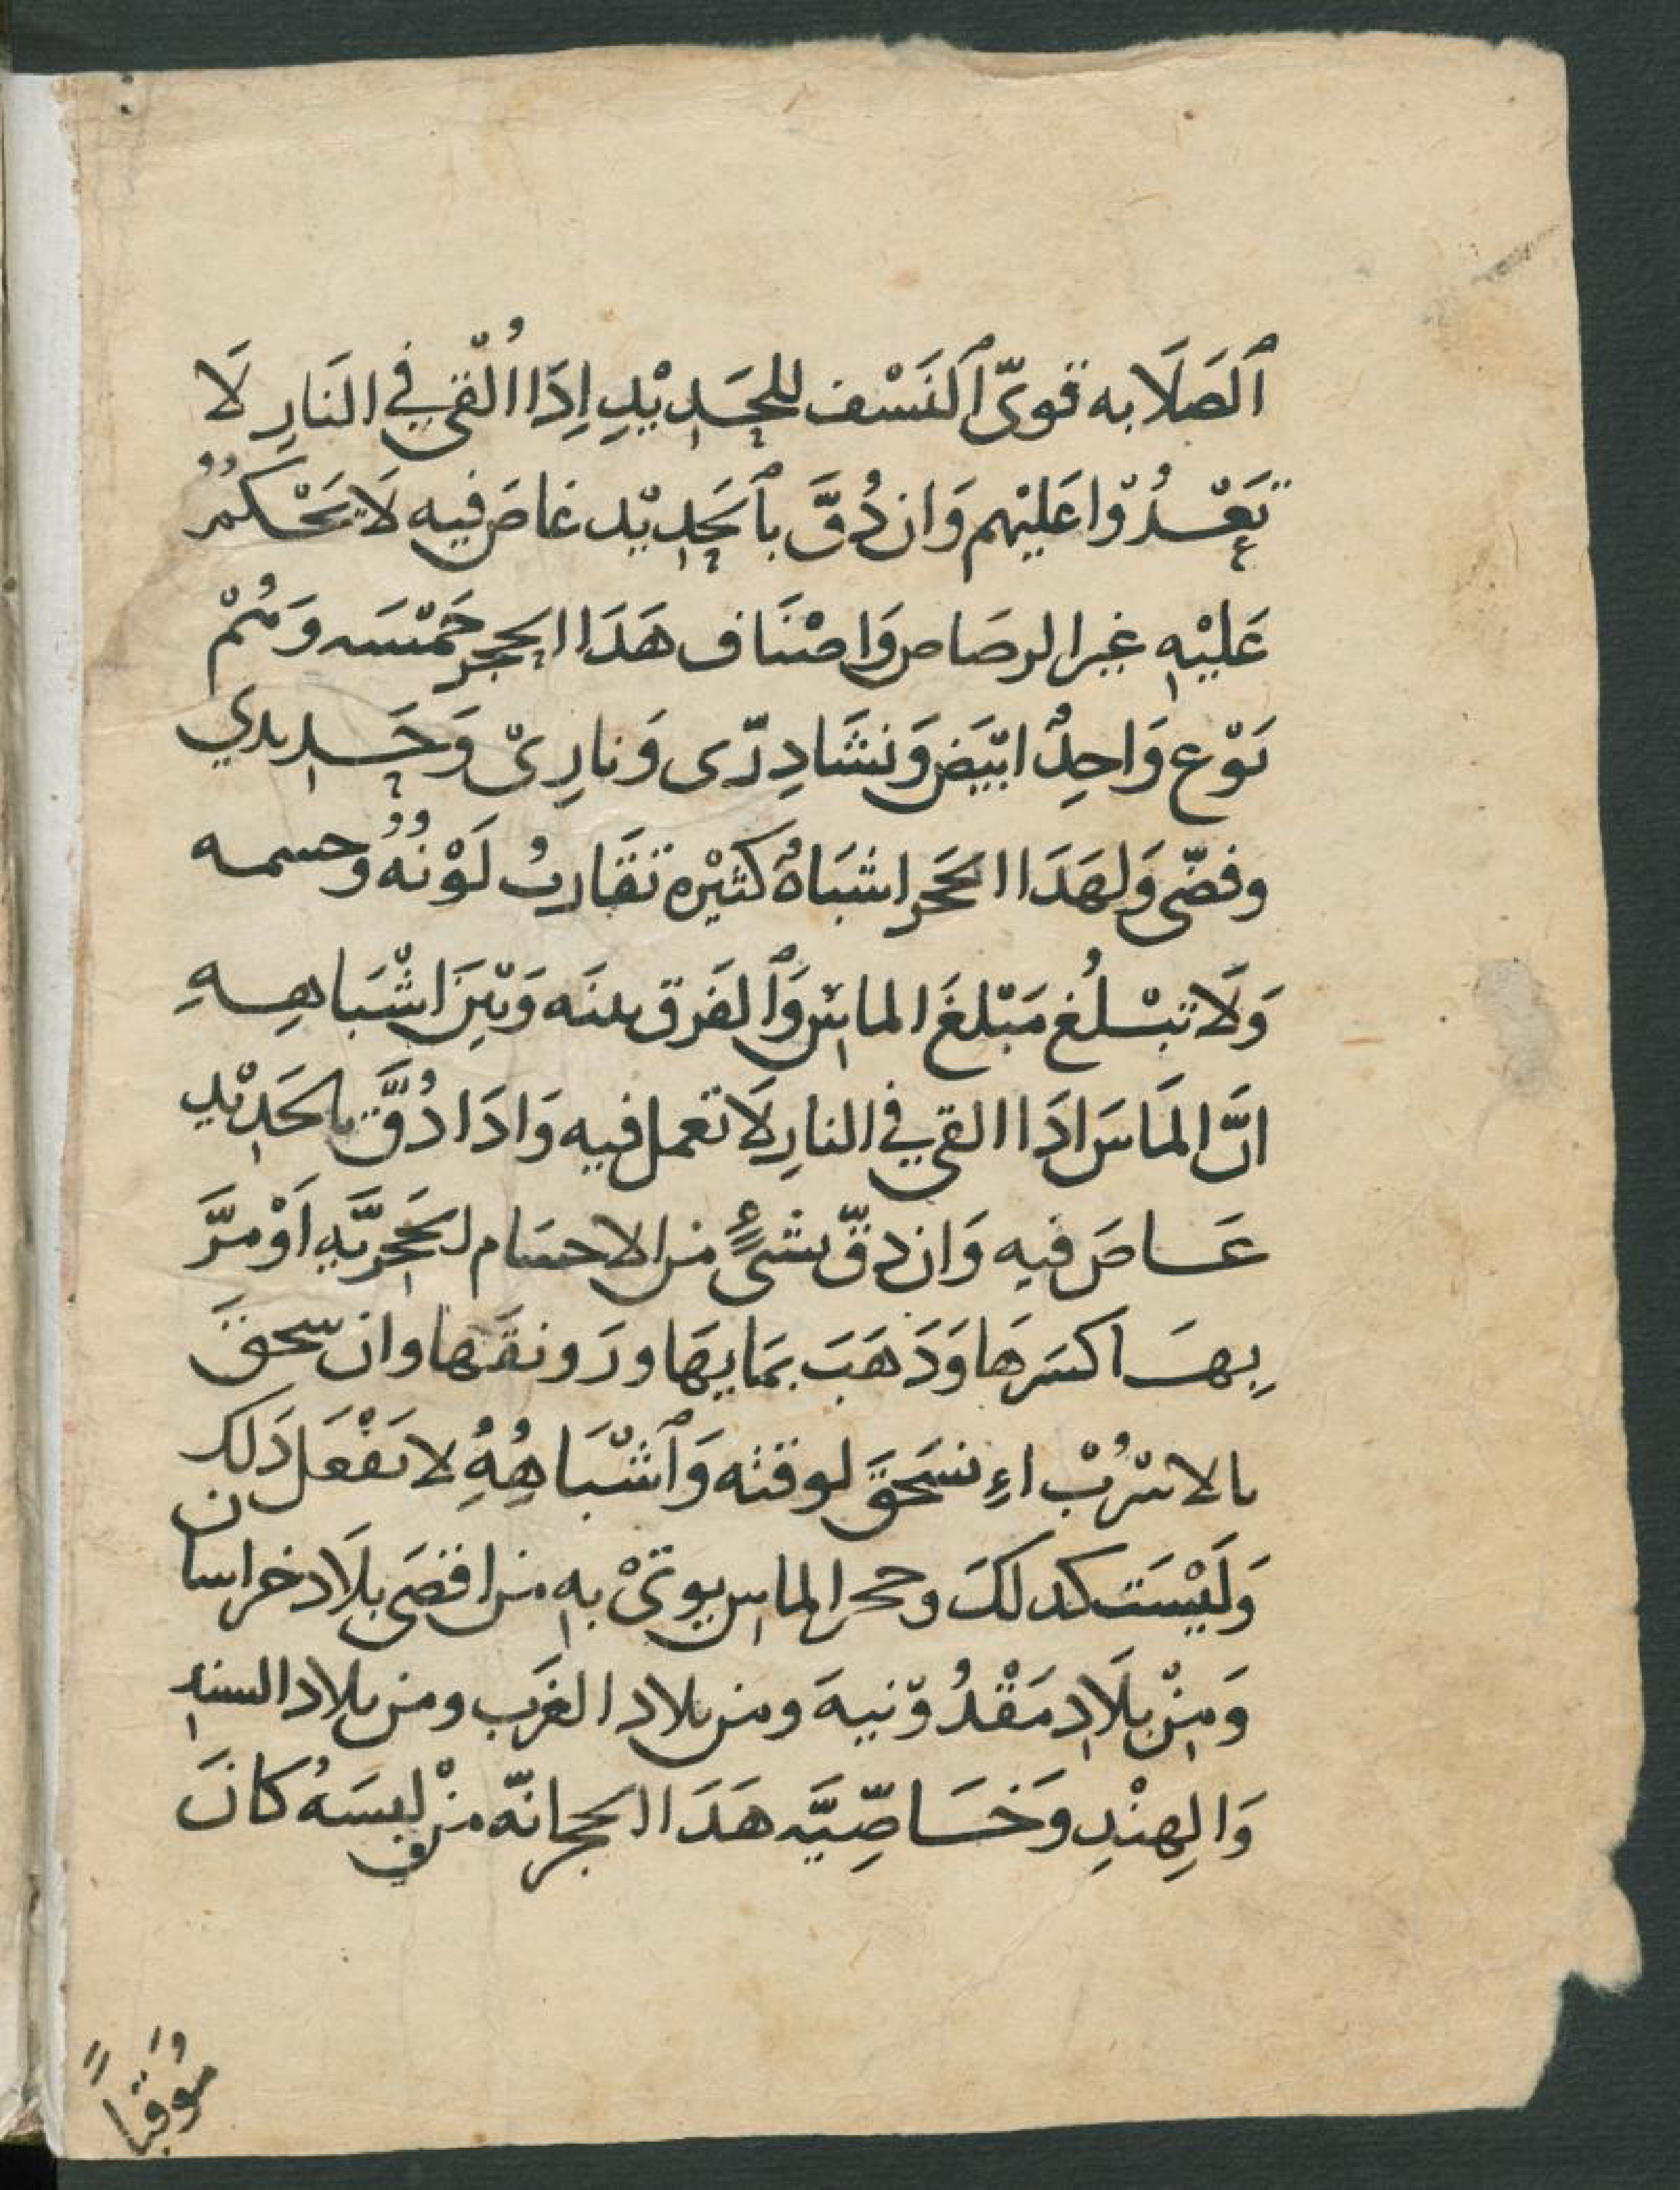 ٱلصَلَابه قوىّ ٱلنَسْف للحَدِيْدِ اِذَا اُلْقى في النَارِ لَا
تَعْدُوْا عَليْهم وَان دُقَّ بٱلحَدِيْد غاصَ فيه لَا يَحْكمُ
عَليْهِ غير الرصَاص وَاصْنَاف هَدَا الحجر خَمْسَه وَمنْهم
نَوْع وَاحِدٌ ابْيَض وَنشَادِرّى وَنارِىْ وَحَديدي
وفضّى وَلهَدَا الحَجر اشبَاهٌ كثيْره تقَاربُ لَوْنهُ وحسمه
وَلَا تبْلُغ مَبْلغَ الماس وَٱلفَرق بينَه وَبيْنَ اشْبَاهِهِ
انَّ المَاسَ ادَا القى في النارِ لَا تعمل فيه وَادَا دُقَّ بالحَدِيْدِ
عَاصَ فيه وَان دقّ بشئٍ من الاحسَام الحَجريَّهِ اَوْ مرَّ
بِهَا كسَرهَا وَدَهَبَ بمَايهَا ورَونقهَا وان سحقَ
بالاسْرُبْ اءِ نسَحَقَ لوقته وَٱشْبَاهُهُ لا تفْعَل دَلك
وَلَيْسَت كدلكَ وحجر الماس يوتىْ بهِ من اقصَى بلَاد خراسان
وَمِنْ بلَادِ مَقْدُوّنيهَ ومن بلاد الغَرب ومن بلاد السند
وَالهِنْدِ وَخَاصِّيَّه هَدَا الحجر انّه منْ لبسَهُ كانَ
مُوَقّباً